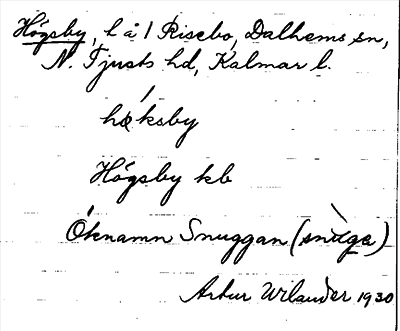 Högsby, l å 1 Risebo, Dalhems sn,
N. Tjusts hd, Kalmar l.
høksby
Högsby kb
Öknamn Snuggan (snùga)
Artur Wilander 1930